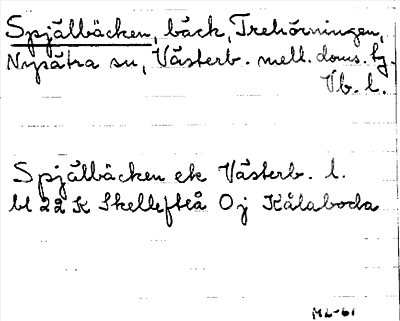 Spjälbäcken, bäck, Trehörningen,
Nysätra sn, Västerb. mell. doms. hg.
Vb. l.
Spjälbäcken ek Västerb. l.
bl 22 K Skellefteå Oj Kålaboda
ML-61